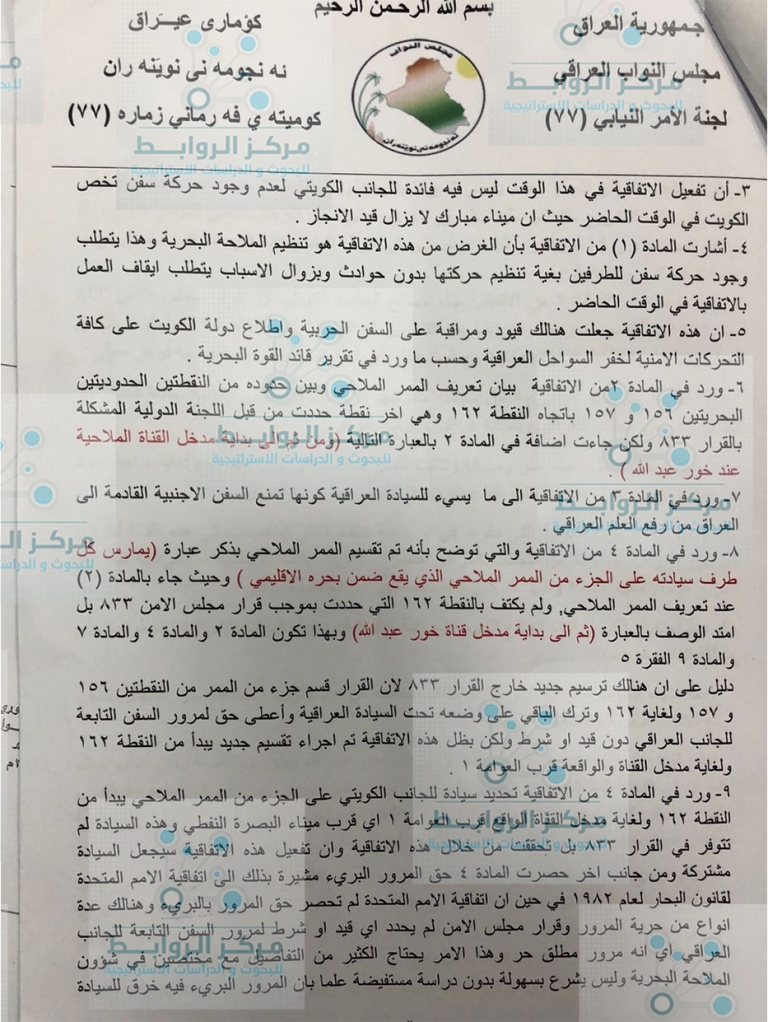 بسم الله الرحمن الرحيم
جمهورية العراق
مجلس النواب العراقي
لجنة الأمر النيابي (٧٧)
كۆماری عيـراق
ئه نجومه نی نوينه ران
كوميته ي فه رماني زماره (٧٧)
مجلس النواب
ئه نجومه نى نوينه ران
مركز الروابط
للبحوث و الدراسات الاستراتيجية
٣- أن تفعيل الاتفاقية في هذا الوقت ليس فيه فائدة للجانب الكويتي لعدم وجود حركة سفن تخص
الكويت في الوقت الحاضر حيث ان ميناء مبارك لا يزال قيد الانجاز .
٤- أشارت المادة (١) من الاتفاقية بأن الغرض من هذه الاتفاقية هو تنظيم الملاحة البحرية وهذا يتطلب
وجود حركة سفن للطرفين بغية تنظيم حركتها بدون حوادث وبزوال الاسباب يتطلب ايقاف العمل
بالاتفاقية في الوقت الحاضر .
٥- ان هذه الاتفاقية جعلت هنالك قيود ومراقبة على السفن الحربية واطلاع دولة الكويت على كافة
التحركات الامنية لخفر السواحل العراقية وحسب ما ورد في تقرير قائد القوة البحرية .
٦- ورد في المادة ٢من الاتفاقية بيان تعريف الممر الملاحي وبين حدوده من النقطتين الحدوديتين
البحريتين ١٥٦ و ١٥٧ باتجاه النقطة ١٦٢ وهي اخر نقطة حددت من قبل اللجنة الدولية المشكلة
بالقرار ٨٣٣ ولكن جاءت اضافة في المادة ٢ بالعبارة التالية (ومن ثم الى بداية مدخل القناة الملاحية
عند خور عبد الله ) .
٧- ورد في المادة ٣ من الاتفاقية الى ما يسيء للسيادة العراقية كونها تمنع السفن الاجنبية القادمة الى
العراق من رفع العلم العراقي .
٨- ورد في المادة ٤ من الاتفاقية والتي توضح بأنه تم تقسيم الممر الملاحي بذكر عبارة (يمارس كل
طرف سيادته على الجزء من الممر الملاحي الذي يقع ضمن بحره الاقليمي ) وحيث جاء بالمادة (٢)
عند تعريف الممر الملاحي, ولم يكتف بالنقطة ١٦٢ التي حددت بموجب قرار مجلس الامن ٨٣٣ بل
امتد الوصف بالعبارة (ثم الى بداية مدخل قناة خور عبد الله) وبهذا تكون المادة ٢ والمادة ٤ والمادة ٧
والمادة ٩ الفقرة ٥
دليل على ان هنالك ترسيم جديد خارج القرار ٨٣٣ لان القرار قسم جزء من الممر من النقطتين ١٥٦
و ١٥٧ ولغاية ١٦٢ وترك الباقي على وضعه تحت السيادة العراقية وأعطى حق لمرور السفن التابعة
للجانب العراقي دون قيد او شرط ولكن بظل هذه الاتفاقية تم اجراء تقسيم جديد يبدأ من النقطة ١٦٢
ولغاية مدخل القناة والواقعة قرب العوامة ١ .
٩- ورد في المادة ٤ من الاتفاقية تحديد سيادة للجانب الكويتي على الجزء من الممر الملاحي يبدأ من
النقطة ١٦٢ ولغاية مدخل القناة الواقع قرب العوامة ١ اي قرب ميناء البصرة النفطي وهذه السيادة لم
تتوفر في القرار ٨٣٣ بل تحققت من خلال هذه الاتفاقية وان تفعيل هذه الاتفاقية سيجعل السيادة
مشتركة ومن جانب اخر حصرت المادة ٤ حق المرور البريء مشيرة بذلك الى اتفاقية الامم المتحدة
لقانون البحار لعام ١٩٨٢ في حين ان اتفاقية الامم المتحدة لم تحصر حق المرور بالبريء وهنالك عدة
انواع من حرية المرور وقرار مجلس الامن لم يحدد اي قيد او شرط لمرور السفن التابعة للجانب
العراقي اي انه مرور مطلق حر وهذا الامر يحتاج الكثير من التفاصيل مع مختصين في شؤون
الملاحة البحرية وليس يشرع بسهولة بدون دراسة مستفيضة علما بان المرور البريء فيه خرق للسيادة